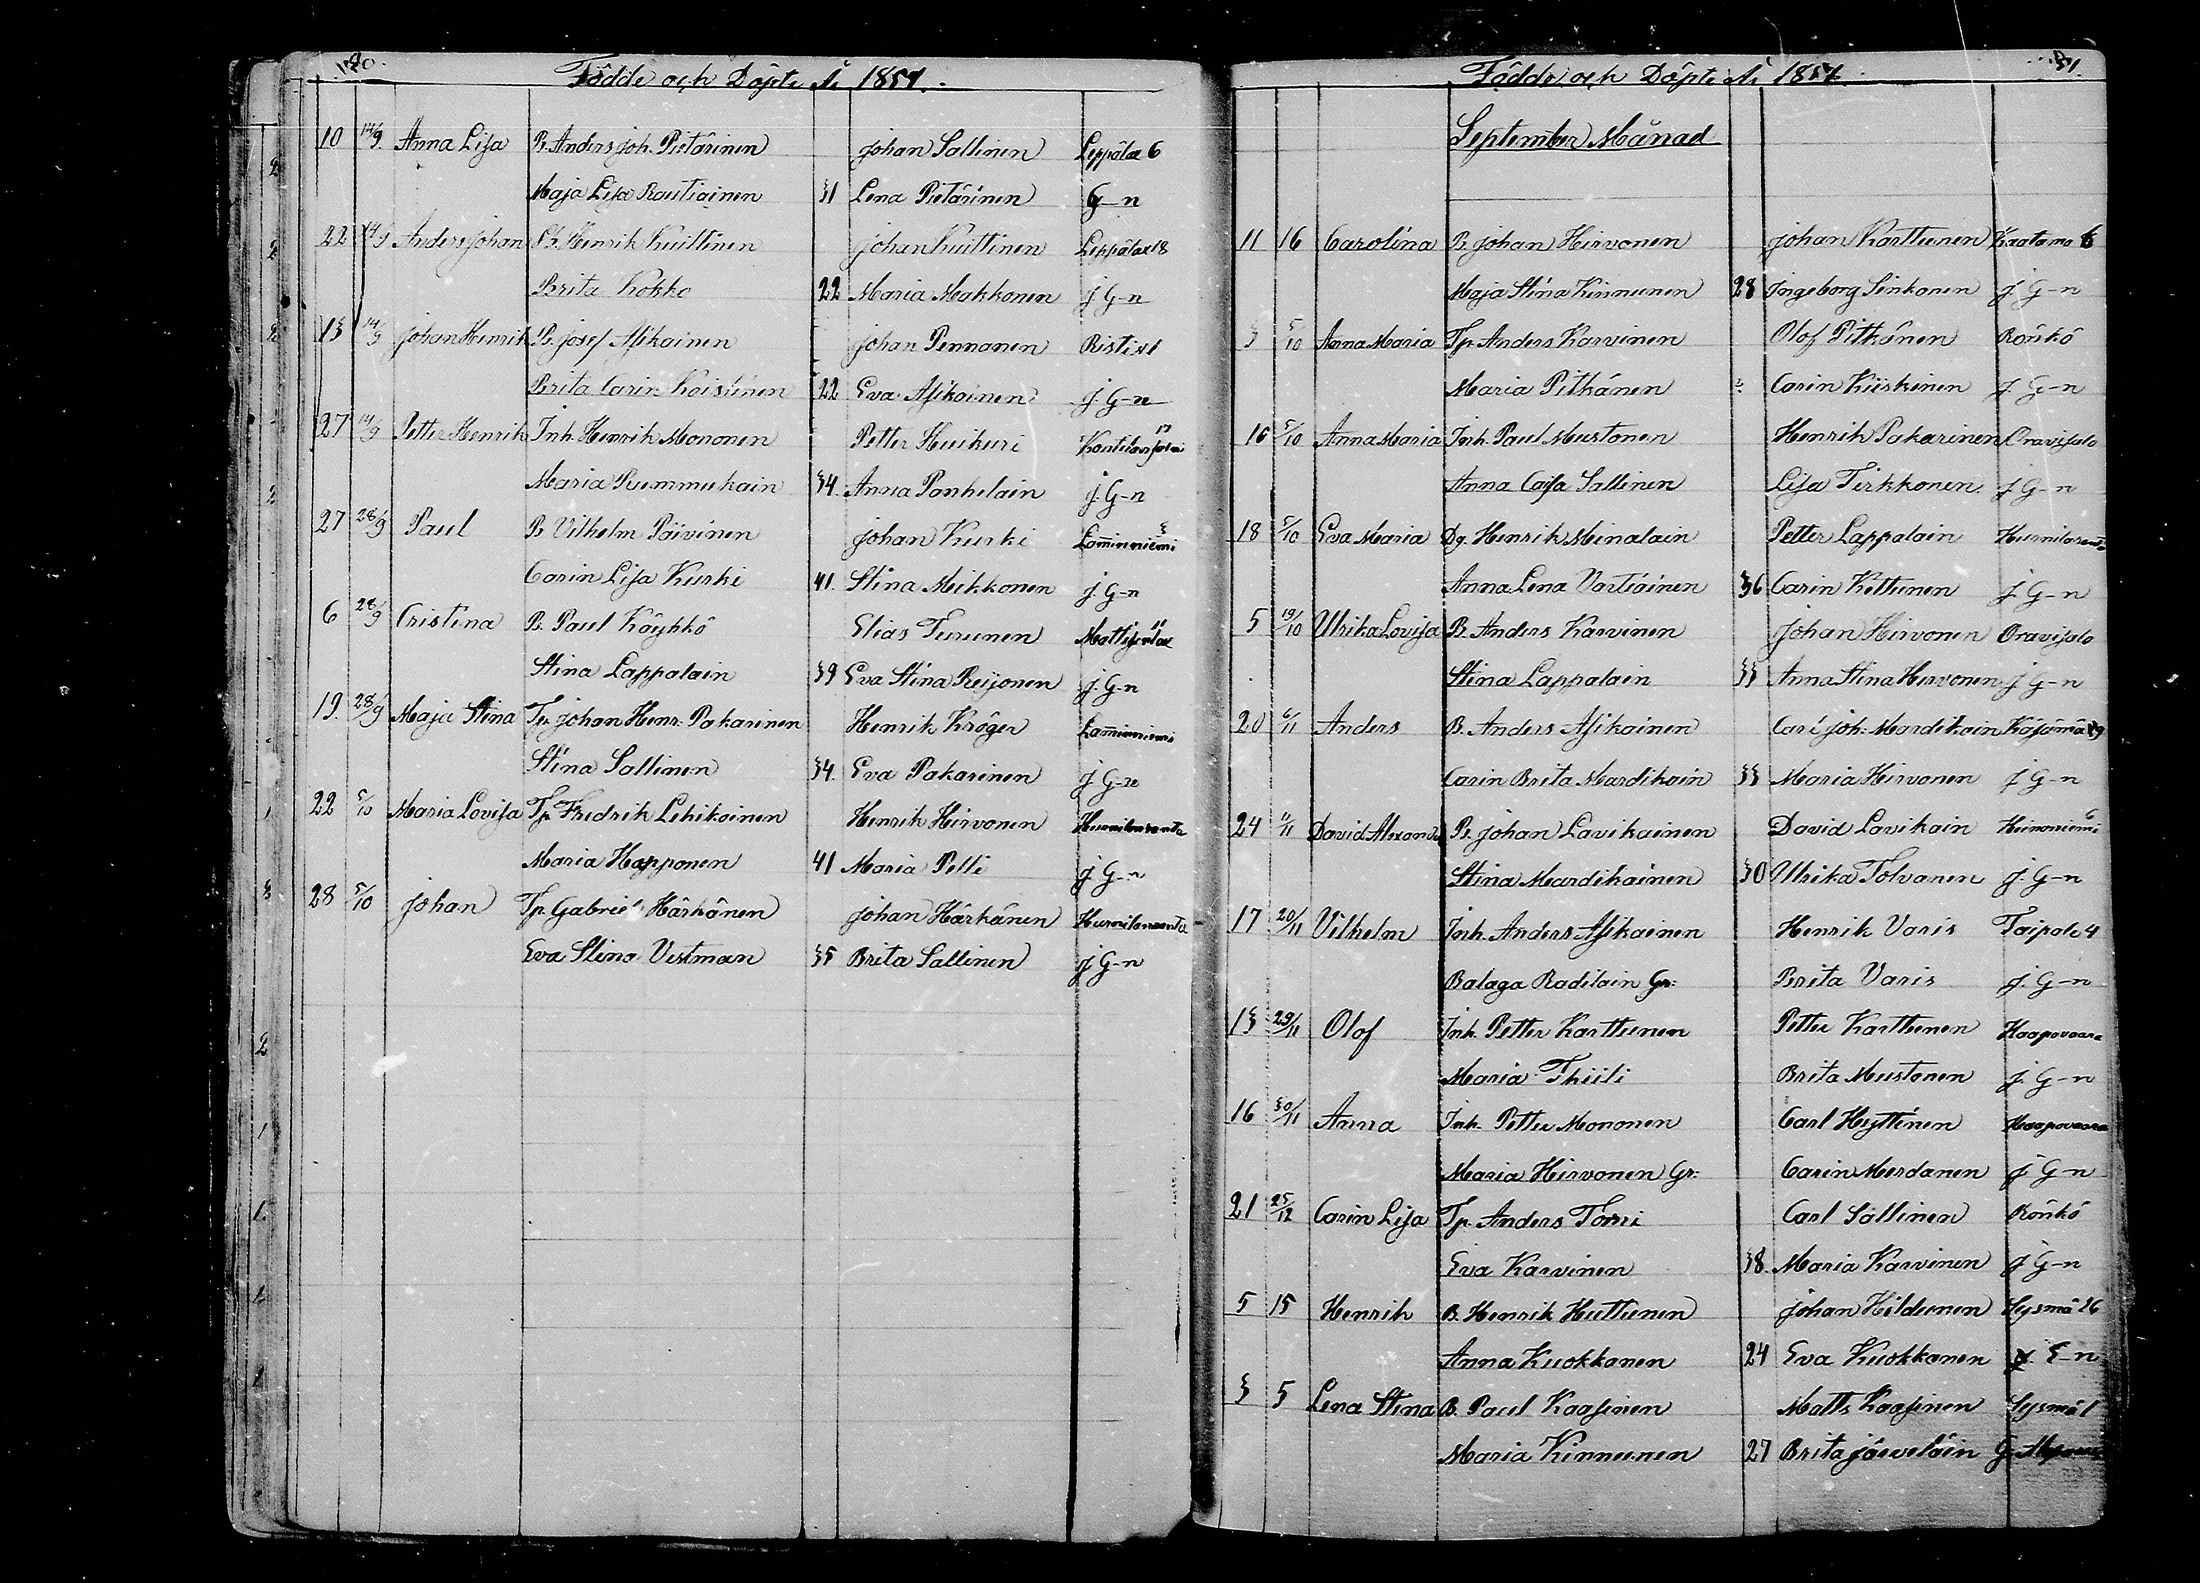 Födde och Döpte År 1851.
10 14/9 Anna Lisa B. Anders Joh. Pietarinen Johan Sallinen Leppälax 6
Maja Lisa Rautiainen 31 Lena Pietarinen G-n
22 14/9 Anders Johan Henrik Kuittinen Johan Kuittinen Leppälax 18
Brita Kokko 22 Maria Makkonen J. G-n
13 14/9 Johan Henrik B. Josef Asikainen Johan Pennanen Risti
Brita Carin Koistinen 22 Eva Asikainen J. G-n
27 14/9 Petter Henrik Inh. Henrik Mononen Petter Huikuri
Maria Rummukain 34. Anna Panhelain J. G-n
27 28/9 Paul B. Vilhelm Päivinen Johan Kurki Lamminniemi 3
Carin Lisa Kurki 41. Stina Mikkonen J. G-n
6 28/9 Cristina B. Paul Käykkö Elias Turunen
Stina Lappalain 39 Eva Stina Reijonen J. G-n
19. 28/9 Maja Stina Tp. Johan Henr. Pakarinen Henrik Kröger Lamminniemi
Stina Sallinen 34. Eva Pakarinen J. G-n
22 5/10 Maria Lovisa Tp. Fredrik Lehikoinen Henrik Hirvonen Hurmilanranta
Maria Happonen 41 Maria Pelli J. G-n
28 5/10 Johan Tp. Gabriel Härkänen Johan Härkänen Hurmilanranta
Eva Stina Vestman 35 Brita Sallinen J. G-n
Födde och Döpte År 1851. 31.
September Månad
11 16 Carolina B. Johan Hirvonen Johan Karttunen Kaatamo 6
Maja Stina Kinnunen 28 Ingeborg Sinkonen J. G-n
3 5/10 Anna Maria Tp. Anders Karvinen Olof Pitkänen Rönkö
Maria Pitkänen Carin Kiiskinen J. G-n
16 5/10 Anna Maria Inh. Paul Mustonen Henrik Pakarinen Oravisalo
Anna Caisa Sallinen Lisa Tirkkonen J. G-n
18 5/10 Eva Maria Dg. Henrik Minalain Petter Lappalain Hurmilarant
Anna Lena Vartiainen 36 Carin Kettunen J. G-n
5 19/10 Ulrika Lovisa B. Anders Karvinen Johan Hirvonen Oravisalo
Stina Lappalain 33 Anna Stina Hirvonen J. G-n
20 6/11 Anders B. Anders Asikainen Carl Joh. Mardikain Käsämä 29
Carin Brita Mardikain 33 Maria Hirvonen J. G-n
24 11/11 David Alexand B. Johan Lavikainen David Lavikain Heinoniemi 6
Stina Mardikainen 30 Ulrika Tolvanen J. G-n
17 20/11 Vilhelm Inh. Anders Asikainen Henrik Varis Taipale 4
Balaga Radilain Gr: Brita Varis J. G-n
13 29/11 Olof Inh. Petter Karttunen Petter Karttunen Haapovaara
Maria Thiili Brita Mustonen J. G-n
16 30/11 Anna Inh. Petter Mononen Carl Hyttinen Haapovaara
Maria Hirvonen Gr: Carin Merdanen J. G-n
21 25/12 Carin Lisa Tp. Anders Törri Carl Sallinen Rönkö
Eva Karvinen 38. Maria Karvinen J. G-n
5 15 Henrik B. Henrik Huttunen Johan Hildunen Sysmä 26
Anna Kuokkanen 24 Eva Kuokkanen J. E-n
3 5 Lena Stina B. Paul Kaasinen Matts Kaasinen Sysmä 1
Maria Kinnunen 27 Brita Järveläin G.